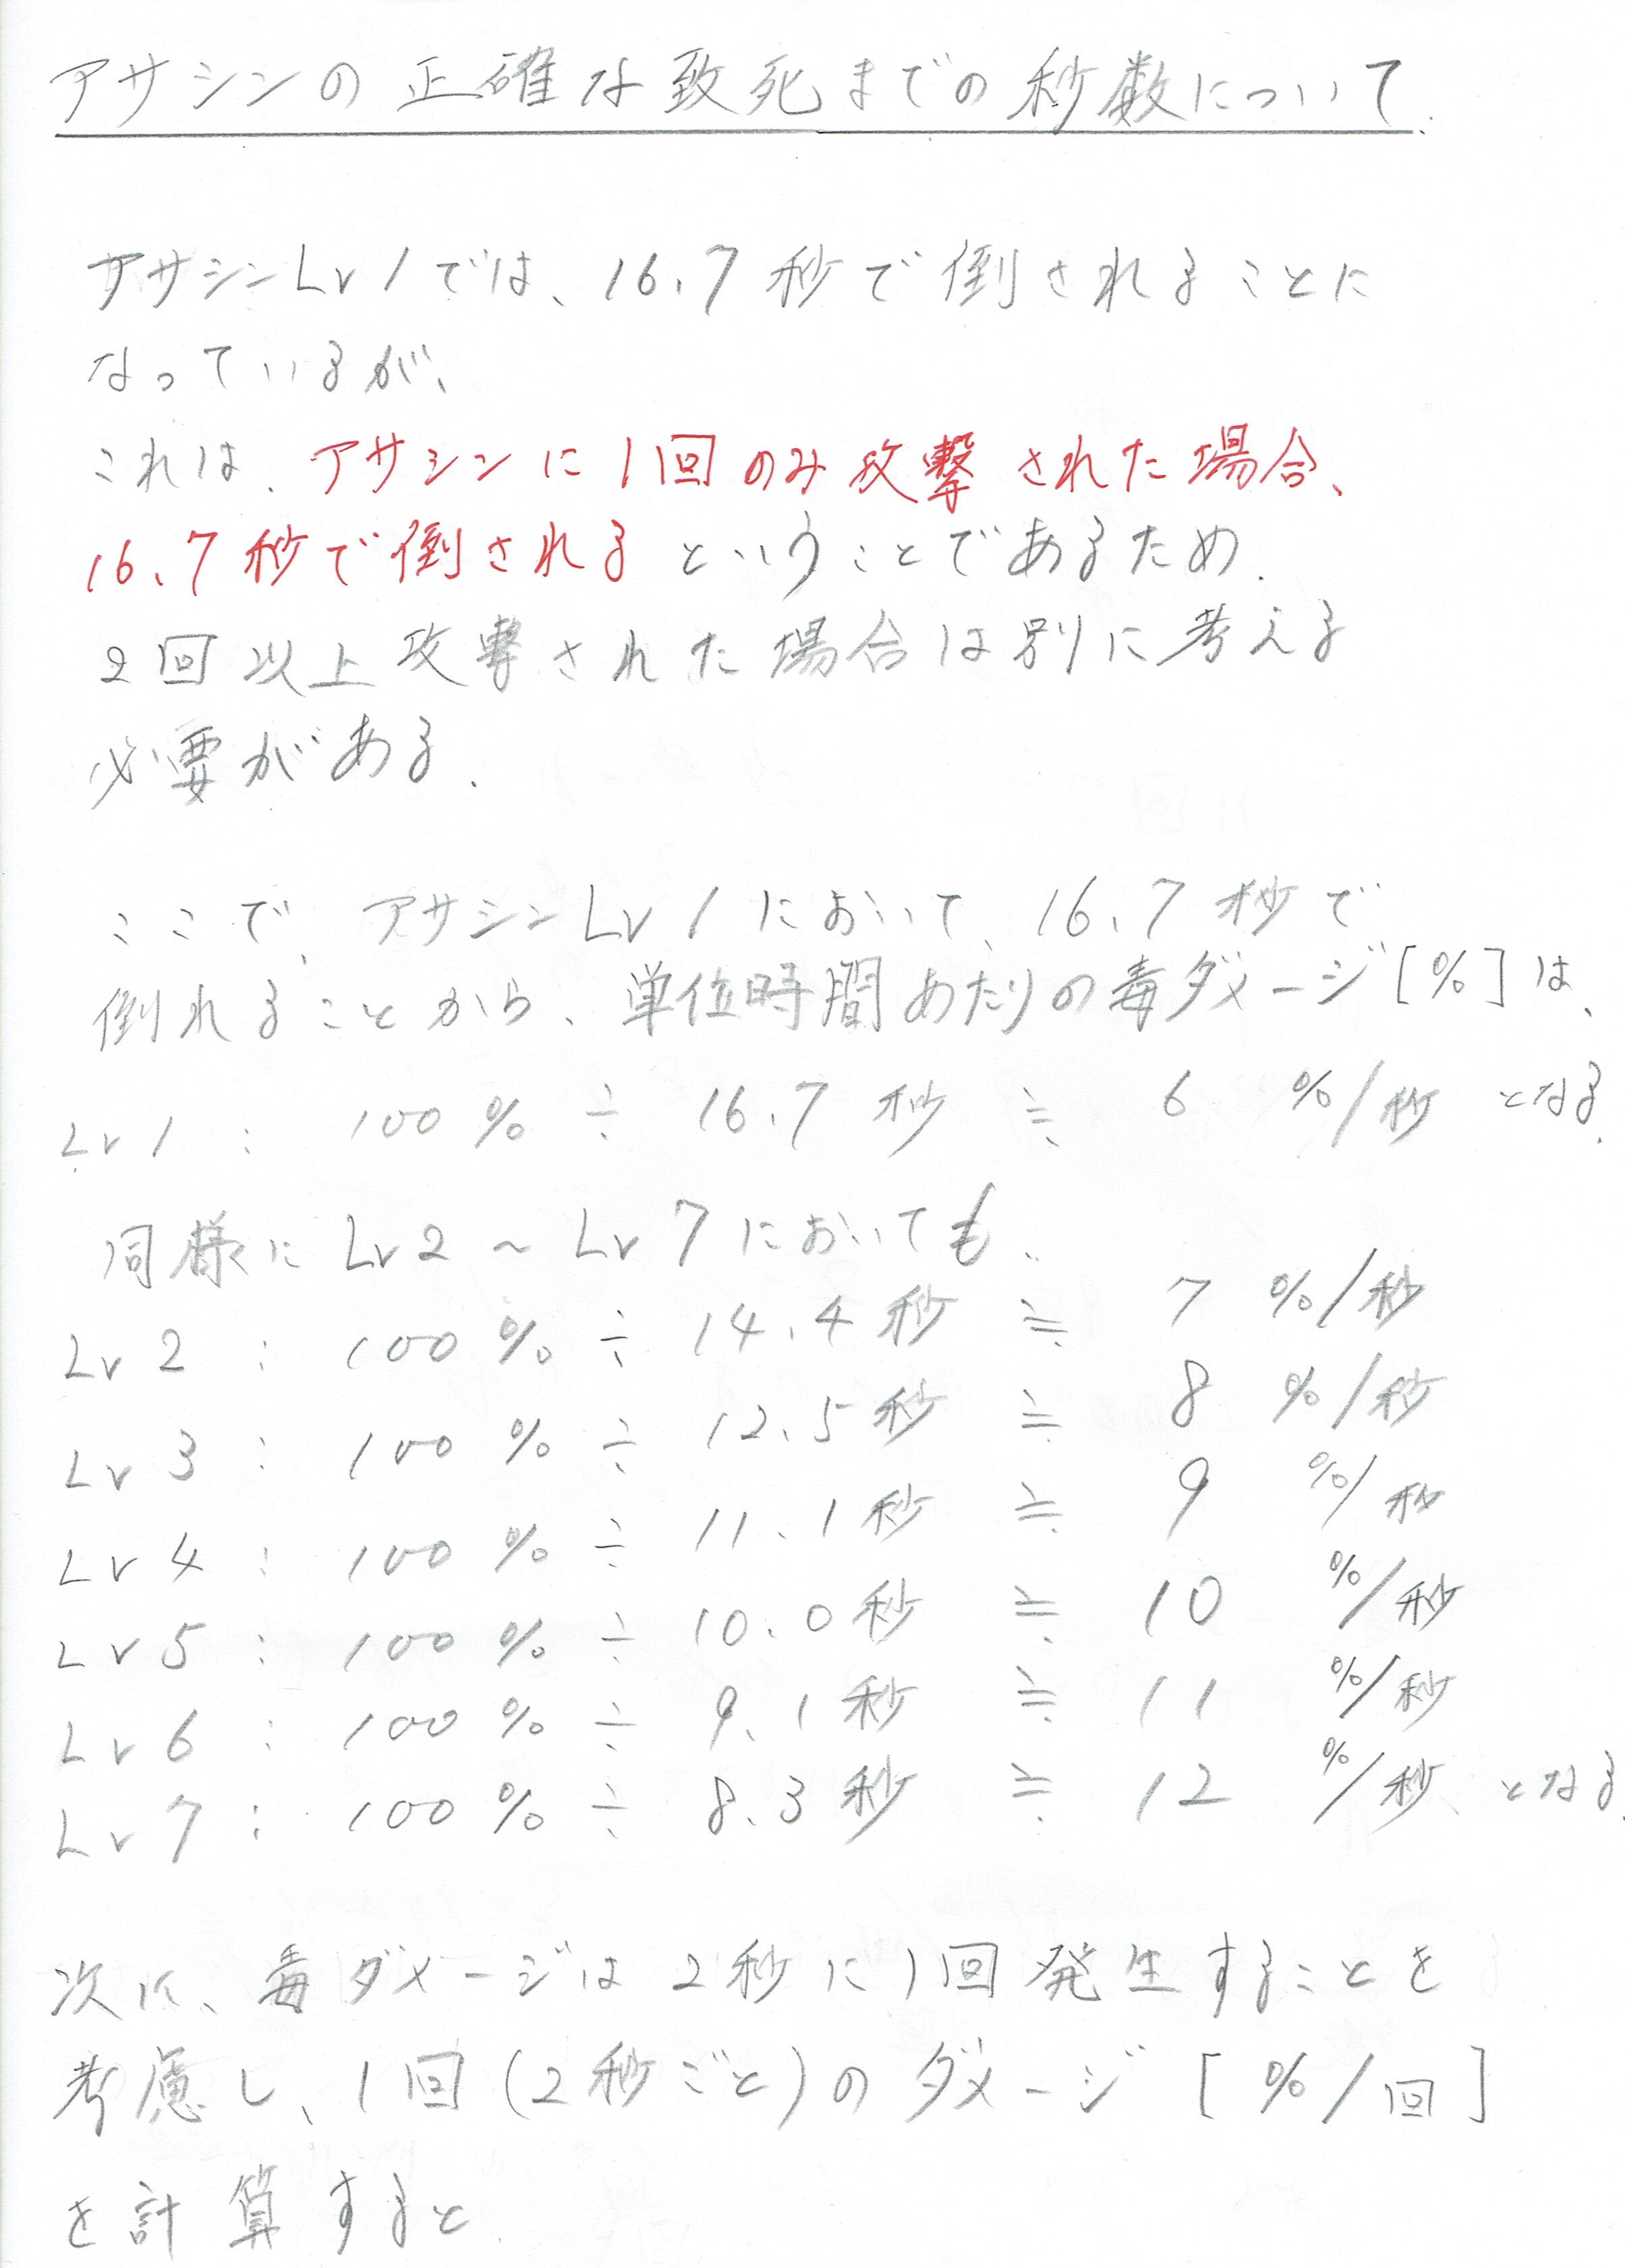 アサシンの正確な致死までの秒数について.
アサシンLv1では、16.7秒で倒されることに
なっているが、
これは、アサシンに1回のみ攻撃された場合、
16.7秒で倒されるということであるため、
2回以上攻撃された場合は別に考える
必要がある.
ここで、アサシンLv1において、16.7秒で
倒れることから、単位時間あたりの毒ダメージ[%]は、
Lv1 : 100% ÷ 16.7秒 ≒ 6 %/秒 となる.
同様にLv2 ~ Lv7においても..
Lv2 : 100% ÷ 14.4秒 ≒ 7 %/秒
Lv3 : 100% ÷ 12.5秒 ≒ 8 %/秒
Lv4 : 100% ÷ 11.1秒 ≒ 9 %/秒
Lv5 : 100% ÷ 10.0秒 ≒ 10 %/秒
Lv6 : 100% ÷ 9.1秒 ≒ 11 %/秒
Lv7 : 100% ÷ 8.3秒 ≒ 12 %/秒 となる.
次に、毒ダメージは2秒に1回発生することを
考慮し、1回(2秒ごと)のダメージ[%/回]
を計算すると.